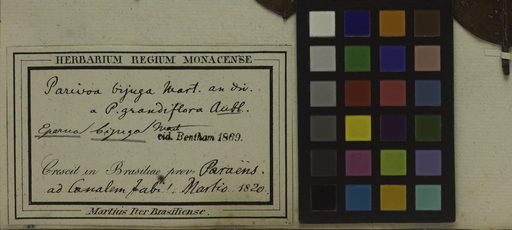 HERBARIUM REGIUM MONACENSE
Parivoa bijuga Mart. an div.
a P. grandiflora Aubl.
Eperua bijuga Mart
vid. Bentham 1869.
Crescit in Brasiliae prov. Paraëns.
ad Canalem Jabi ! Martio 1820.
Martius Iter Brasiliense.